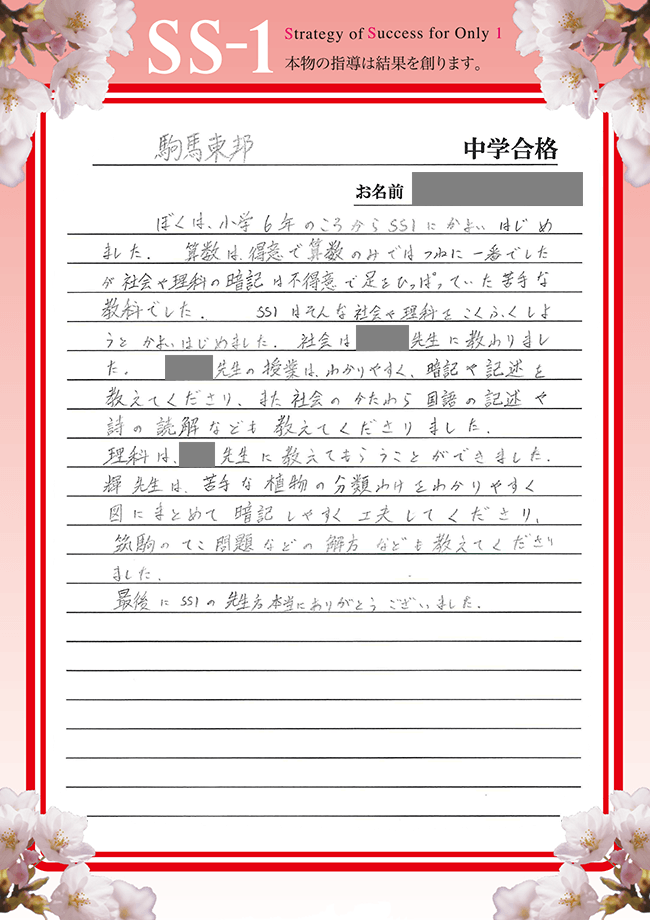 SS-1
Strategy of Success for Only 1
本物の指導は結果を創ります。
駒場東邦 中学合格
お名前
ぼくは、小学6年のころからSS1にかよいはじめ
ました。算数は、得意で算数のみではつねに一番でした
が社会や理科の暗記は不得意で足をひっぱっていた苦手な
教科でした。SS1はそんな社会や理科をこくふくしよ
うとかよいはじめました。社会は 先生に教わりまし
た。 先生の授業は、わかりやすく、暗記や記述を
教えてくださり、また社会のかたわら国語の記述や
詩の読解なども教えてくださりました。
理科は、 先生に教えてもらうことができました。
輝先生は、苦手な植物の分類わけをわかりやすく
図にまとめて暗記しやすく工夫してくださり、
筑駒のてこ問題などの解方なども教えてくださり
ました。
最後にSS1の先生方本当にありがとうございました。